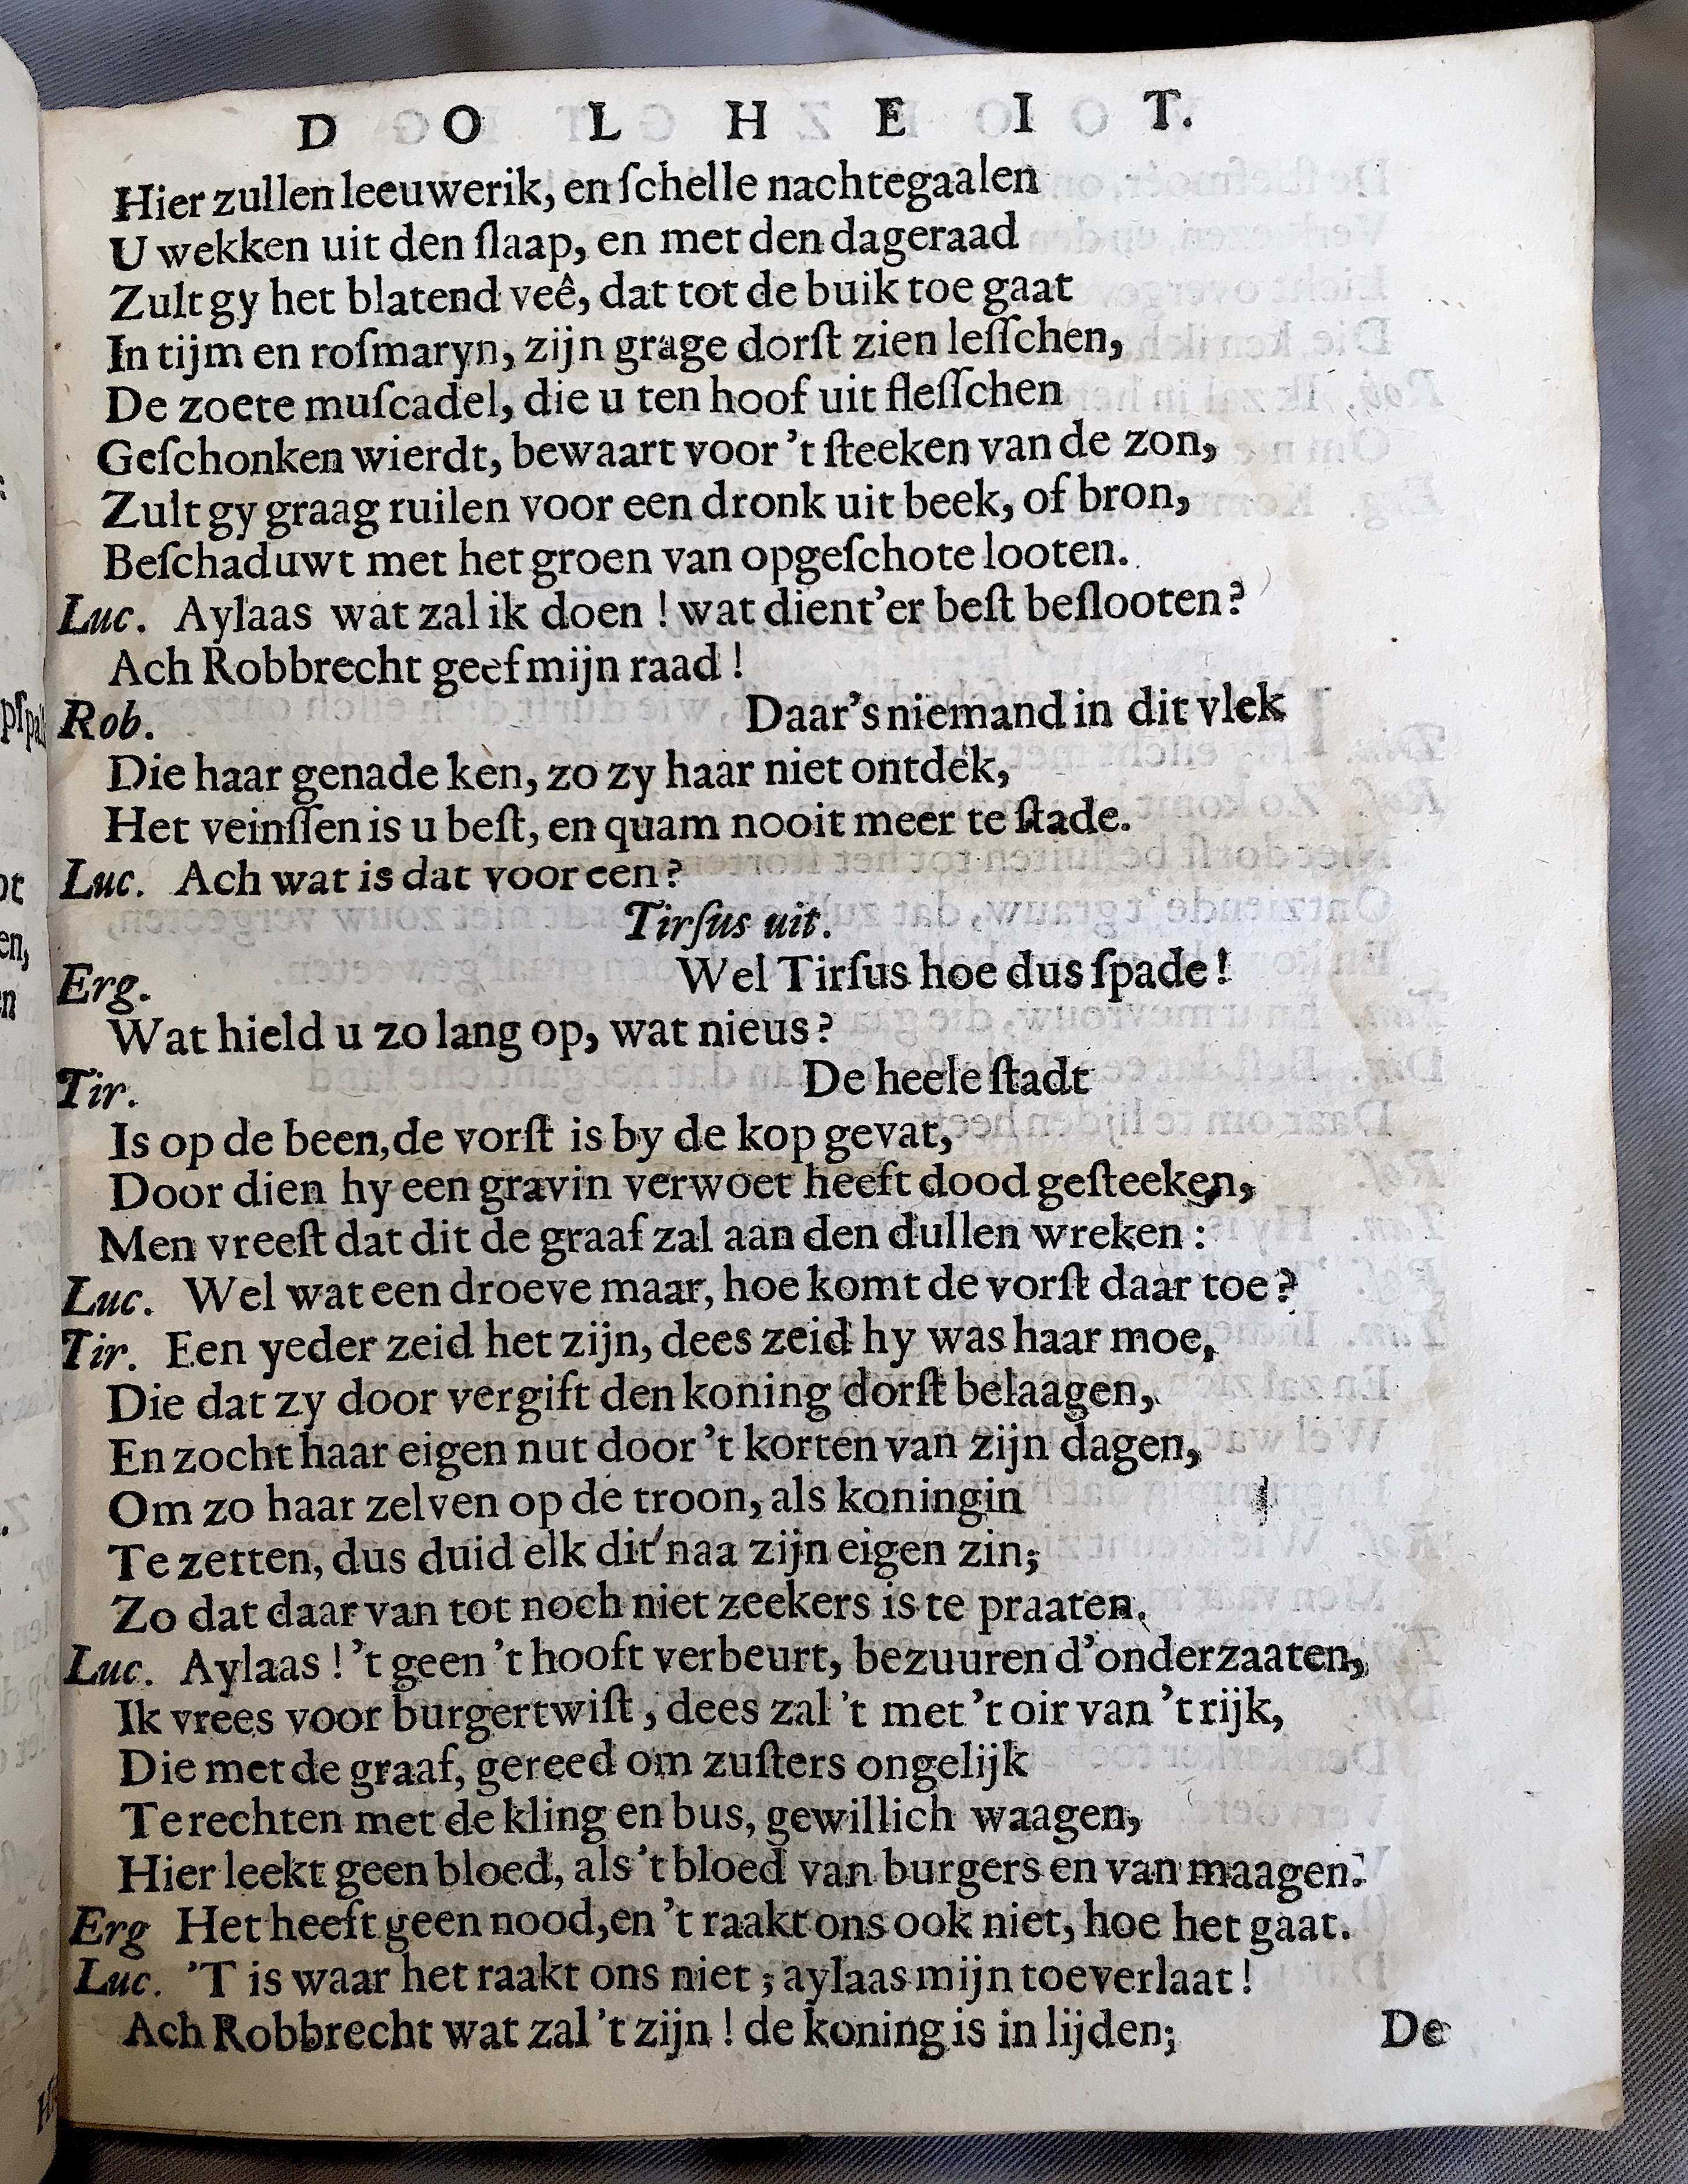 D O L H E I T.
Hier zullen leeuwerik, en ſchelle nachtegaalen
U wekken uit den ſlaap, en met den dageraad
Zult gy het blatend veê, dat tot de buik toe gaat
In tijm en roſmaryn, zijn grage dorſt zien leſſchen,
De zoete muſcadel, die u ten hoof uit fleſſchen
Geſchonken wierdt, bewaart voor 't ſteeken van de zon,
Zult gy graag ruilen voor een dronk uit beek, of bron,
Beſchaduwt met het groen van opgeſchote looten.
Luc. Aylaas wat zal ik doen ! wat dient'er beſt beſlooten?
Ach Robbrecht geef mijn raad !
Rob. Daar's niemand in dit vlek
Die haar genade ken, zo zy haar niet ontdek,
Het veinſſen is u beſt, en quam nooit meer te ſtade.
Luc. Ach wat is dat voor een?
Tirſus uit.
Erg. Wel Tirſus hoe dus ſpade!
Wat hield u zo lang op, wat nieus?
Tir. De heele ſtadt
Is op de been, de vorſt is by de kop gevat,
Door dien hy een gravin verwoet heeft dood geſteeken,
Men vreeſt dat dit de graaf zal aan den dullen wreken :
Luc. Wel wat een droeve maar, hoe komt de vorſt daar toe?
Tir. Een yeder zeid het zijn, dees zeid hy was haar moe,
Die dat zy door vergift den koning dorſt belaagen,
En zocht haar eigen nut door 't korten van zijn dagen,
Om zo haar zelven op de troon, als koningin
Te zetten, dus duid elk dit naa zijn eigen zin;
Zo dat daar van tot noch niet zeekers is te praaten.
Luc. Aylaas ! 't geen 't hooft verbeurt, bezuuren d'onderzaaten,
Ik vrees voor burgertwiſt, dees zal 't met 't oir van 't rijk,
Die met de graaf, gereed om zuſters ongelijk
Te rechten met de kling en bus, gewillich waagen,
Hier leekt geen bloed, als 't bloed van burgers en van maagen.
Erg Het heeft geen nood, en 't raakt ons ook niet, hoe het gaat.
Luc. 'T is waar het raakt ons niet; aylaas mijn toeverlaat!
Ach Robbrecht wat zal 't zijn ! de koning is in lijden;
De